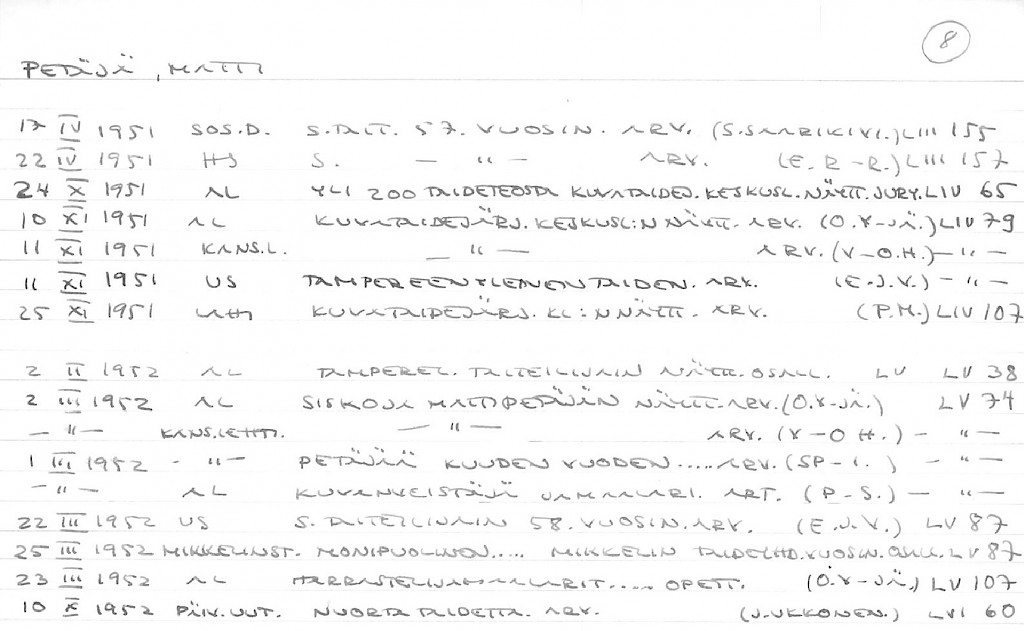 8
PETÄJÄ, MATTI
17 IV 1951 SOS.D. S.TAIT. 57. VUOSIN. ARV. (S.SAARIKIVI.) LIII 155
22 IV 1951 HS S. — " — ARV. (E. R-R.) LIII 157
24 X 1951 AL YLI 200 TAIDETEOSTA KUVATAIDEJ. KESKUSL. NÄYTT. JURY. LIV 65
10 XI 1951 AL KUVATAIDEJÄRJ. KESKUSL:N NÄYTT. ARV. (O.V-JÄ.) LIV 79
11 XI 1951 KANS.L. — " — ARV. (V-O.H.) — " —
11 XI 1951 US TAMPEREEN YLEINEN TAIDEN. ARV. (E.J.V.) — " —
25 XI 1951 KUVATAIDEJÄRJ. KL:N NÄYTT. ARV. (P.M.) LIV 107
2 II 1952 AL TAMPEREL. TAITEILIJAIN NÄYTT. OSALL. LV LV 38
2 III 1952 AL SISKO JA MATTI PETÄJÄN NÄYTT. ARV. (O.V-JÄ.) LV 74
— " — KANS.LEHTI. — " — ARV. (V-O H.) — " —
1 III 1952 - " — PETÄJÄÄ KUUDEN VUODEN..... ARV. (SP-I. ) — " —
— " — AL KUVANVEISTÄJÄ JA MAALARI. ART. (P-S.) — " —
22 III 1952 US S. TAITEILIJAIN 58. VUOSIN. ARV. (E.J.V.) LV 87
25 III 1952 MIKKELIN ST. MONIPUOLINEN.... MIKKELIN TAIDEYHD. VUOSIN. OSALL. LV 87
23 III 1952 AL HARRASTELIJAMAALARIT..... OPETT. (O.V-JÄ.) LV 107
10 X 1952 PÄIV.UUT. NUORTA TAIDETTA. ARV. (J.UKKONEN.) LVI 60